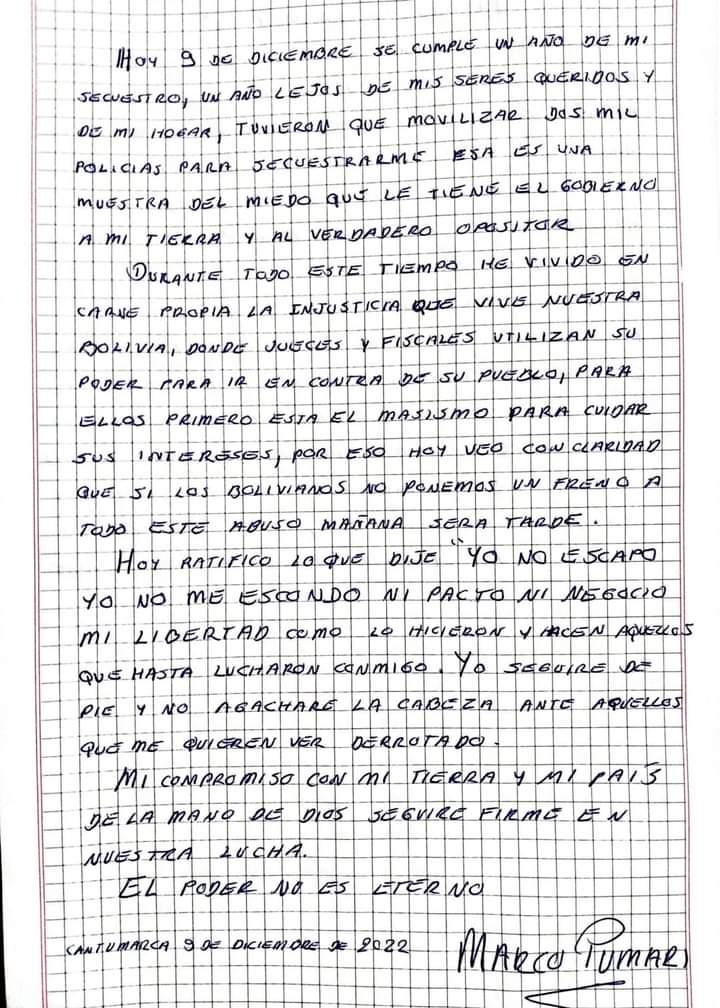 HOY 9 DE DICIEMBRE SE CUMPLE UN AÑO DE MI
SECUESTRO, UN AÑO LEJOS DE MIS SERES QUERIDOS Y
DE MI HOGAR, TUVIERON QUE MOVILIZAR DOS MIL
POLICIAS PARA SECUESTRARME ESA ES UNA
MUESTRA DEL MIEDO QUE LE TIENE EL GOBIERNO
A MI TIERRA Y AL VERDADERO OPOSITOR
DURANTE TODO ESTE TIEMPO HE VIVIDO EN
CARNE PROPIA LA INJUSTICIA QUE VIVE NUESTRA
BOLIVIA, DONDE JUECES Y FISCALES UTILIZAN SU
PODER PARA IR EN CONTRA DE SU PUEBLO, PARA
ELLOS PRIMERO ESTA EL MASISMO PARA CUIDAR
SUS INTERESES, POR ESO HOY VEO CON CLARIDAD
QUE SI LOS BOLIVIANOS NO PONEMOS UN FRENO A
TODO ESTE ABUSO MAÑANA SERA TARDE.
HOY RATIFICO LO QUE DIJE "YO NO ESCAPO
YO NO ME ESCONDO NI PACTO NI NEGOCIO
MI LIBERTAD COMO LO HICIERON Y HACEN AQUELLOS
QUE HASTA LUCHARON CONMIGO. YO SEGUIRE DE
PIE Y NO AGACHARE LA CABEZA ANTE AQUELLOS
QUE ME QUIEREN VER DERROTADO.
MI COMPROMISO CON MI TIERRA Y MI PAÍS
DE LA MANO DE DIOS SEGUIRE FIRME EN
NUESTRA LUCHA.
EL PODER NO ES ETERNO
CANTUMARCA 9 DE DICIEMBRE DE 2022
MARCO PUMARI